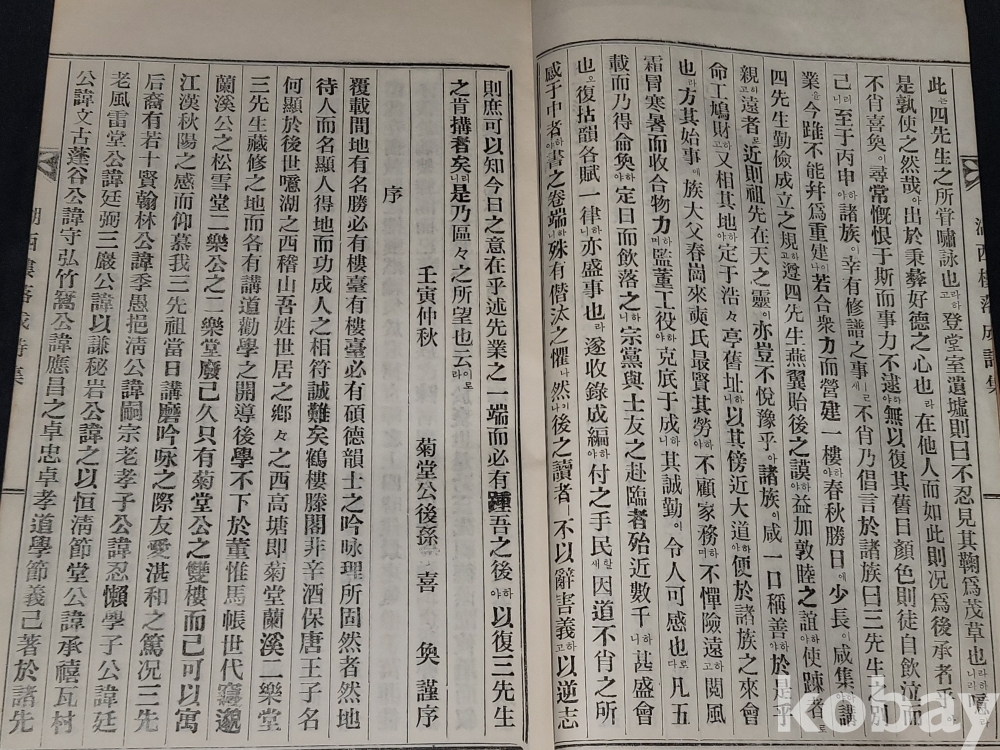 湖西樓落成詩集
此四先生之所嘗嘯詠也라하고登堂室遺墟則曰不忍見其鞠爲茂草也라하니噫라
是孰使之然哉아出於秉彝好德之心也라在他人而如此則况爲後承者乎아
不肖喜奐이尋常慨恨于斯而事力不逮하야無以復其舊日顔色則徒自飮泣而
己러니至于丙申하야諸族이幸有修譜之事새不肖乃倡言於諸族曰三先生
業을今雖不能幷爲重建이나若合衆力而營建一樓하야春秋勝日에少長이咸集하야講
四先生勤儉成立之規하고遵四先生燕翼貽後之謨하야益加敦睦之誼하야使踈者로
親하고遠者로近則祖先在天之靈이亦豈不悅豫乎아諸族이咸一口稱善하야於是乎
命工鳩財하고又相其地하야定于浩々亭舊址하니以其傍近大道하야便於諸族之來會
也라方其始事에族大父春崗來奭氏最賢其勞하야不顧家務하며不憚險遠하고閱風
霜冒寒暑而收合物力하며監董工役하야克底于成하니其誠勤이令人可感也로다凡五
載而乃得侖奐하야定日而飮落之하니宗黨與士友之赴臨者殆近數千이니甚盛會
也오復拈韻各賦一律하니亦盛事也라遂收錄成編하야付之手民할새因道不肖之所
感于中者하야書之卷端하니殊有僭汰之懼나然이나後之讀者不以辭害義하고以逆志
則庶可以知今日之意在乎述先業之一端而必有踵吾之後하야以復三先生
之肯搆者矣리니是乃區々之所望也云이로라
壬寅仲秋 菊堂公後孫 喜 奐 謹序
序
覆載間地有名勝必有樓臺有樓臺必有碩德韻士之吟咏理所固然者然地
待人而名顯人得地而功成人之相符誠難矣鶴樓滕閣非辛酒保唐王子名
何顯於後世噫湖之西稽山吾姓世居之鄕々之西高塘即菊堂蘭溪二樂堂
三先生藏修之地而各有講道勸學之開導後學不下於董惟馬帳世代寢邈
蘭溪公之松雪堂二樂公之二樂堂廢己久只有菊堂公之雙樓而己可以寓
江漢秋陽之感而仰慕我三先祖當日講磨吟咏之際友愛湛和之篤况三先
后裔有若十賢翰林公諱季愚挹淸公諱嗣宗老孝子公諱忍懶學子公諱廷
老風雷堂公諱廷弼三嚴公諱以謙秘岩公諱之以恒淸節堂公諱承禧瓦村
公諱文古蓬谷公諱守弘竹窩公諱應昌之卓忠卓孝道學節義己著於諸先
湖西樓落成詩集
kobay